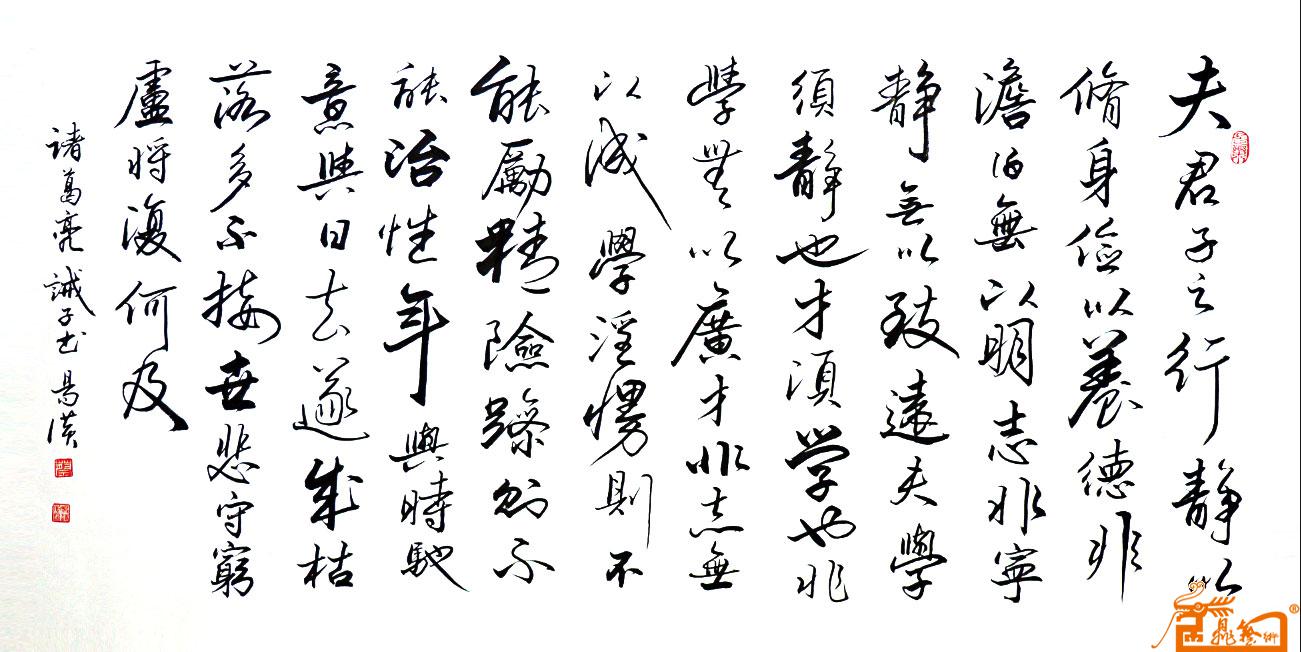 夫君子之行靜以
脩身儉以養德非
澹泊無以明志非寧
靜無以致遠夫學
須靜也才須学也非
學無以廣才非志無
以成學淫慢則不
能勵精險躁則不
能治性年與時馳
意與日去遂成枯
落多不接世悲守窮
廬將復何及
諸葛亮誡子书
鼎藝術